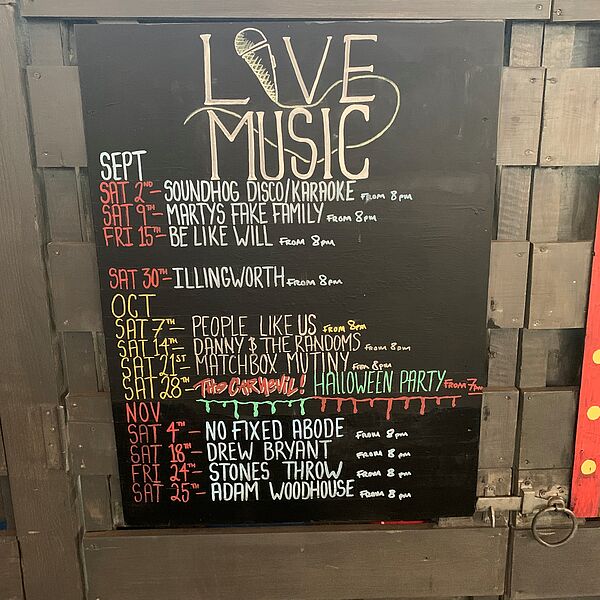 LIVE
MUSIC
SEPT
SAT 2ND - SOUNDHOG DISCO/KARAOKE FROM 8PM
SAT 9TH - MARTYS FAKE FAMILY FROM 8PM
FRI 15TH - BE LIKE WILL FROM 8PM
SAT 30TH - ILLINGWORTH FROM 8PM
OCT
SAT 7TH - PEOPLE LIKE US FROM 8PM
SAT 14TH - DANNY & THE RANDOMS FROM 8PM
SAT 21ST - MATCHBOX MUTINY FROM 8PM
SAT 28TH - THE CARNEVIL! HALLOWEEN PARTY FROM 7PM
NOV
SAT 4TH - NO FIXED ABODE FROM 8PM
SAT 18TH - DREW BRYANT FROM 8PM
FRI 24TH - STONES THROW FROM 8PM
SAT 25TH - ADAM WOODHOUSE FROM 8PM